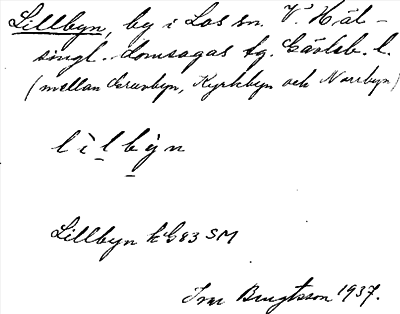 Lillbyn, by i Los sn. V. Häl-
singl. domsagas tg. Gävleb. l.
(mellan Orunbyn, Kyrkbyn och Norrbyn)
lìlbỳn
Lillbyn kG83 SM
Bengtsson 1937.